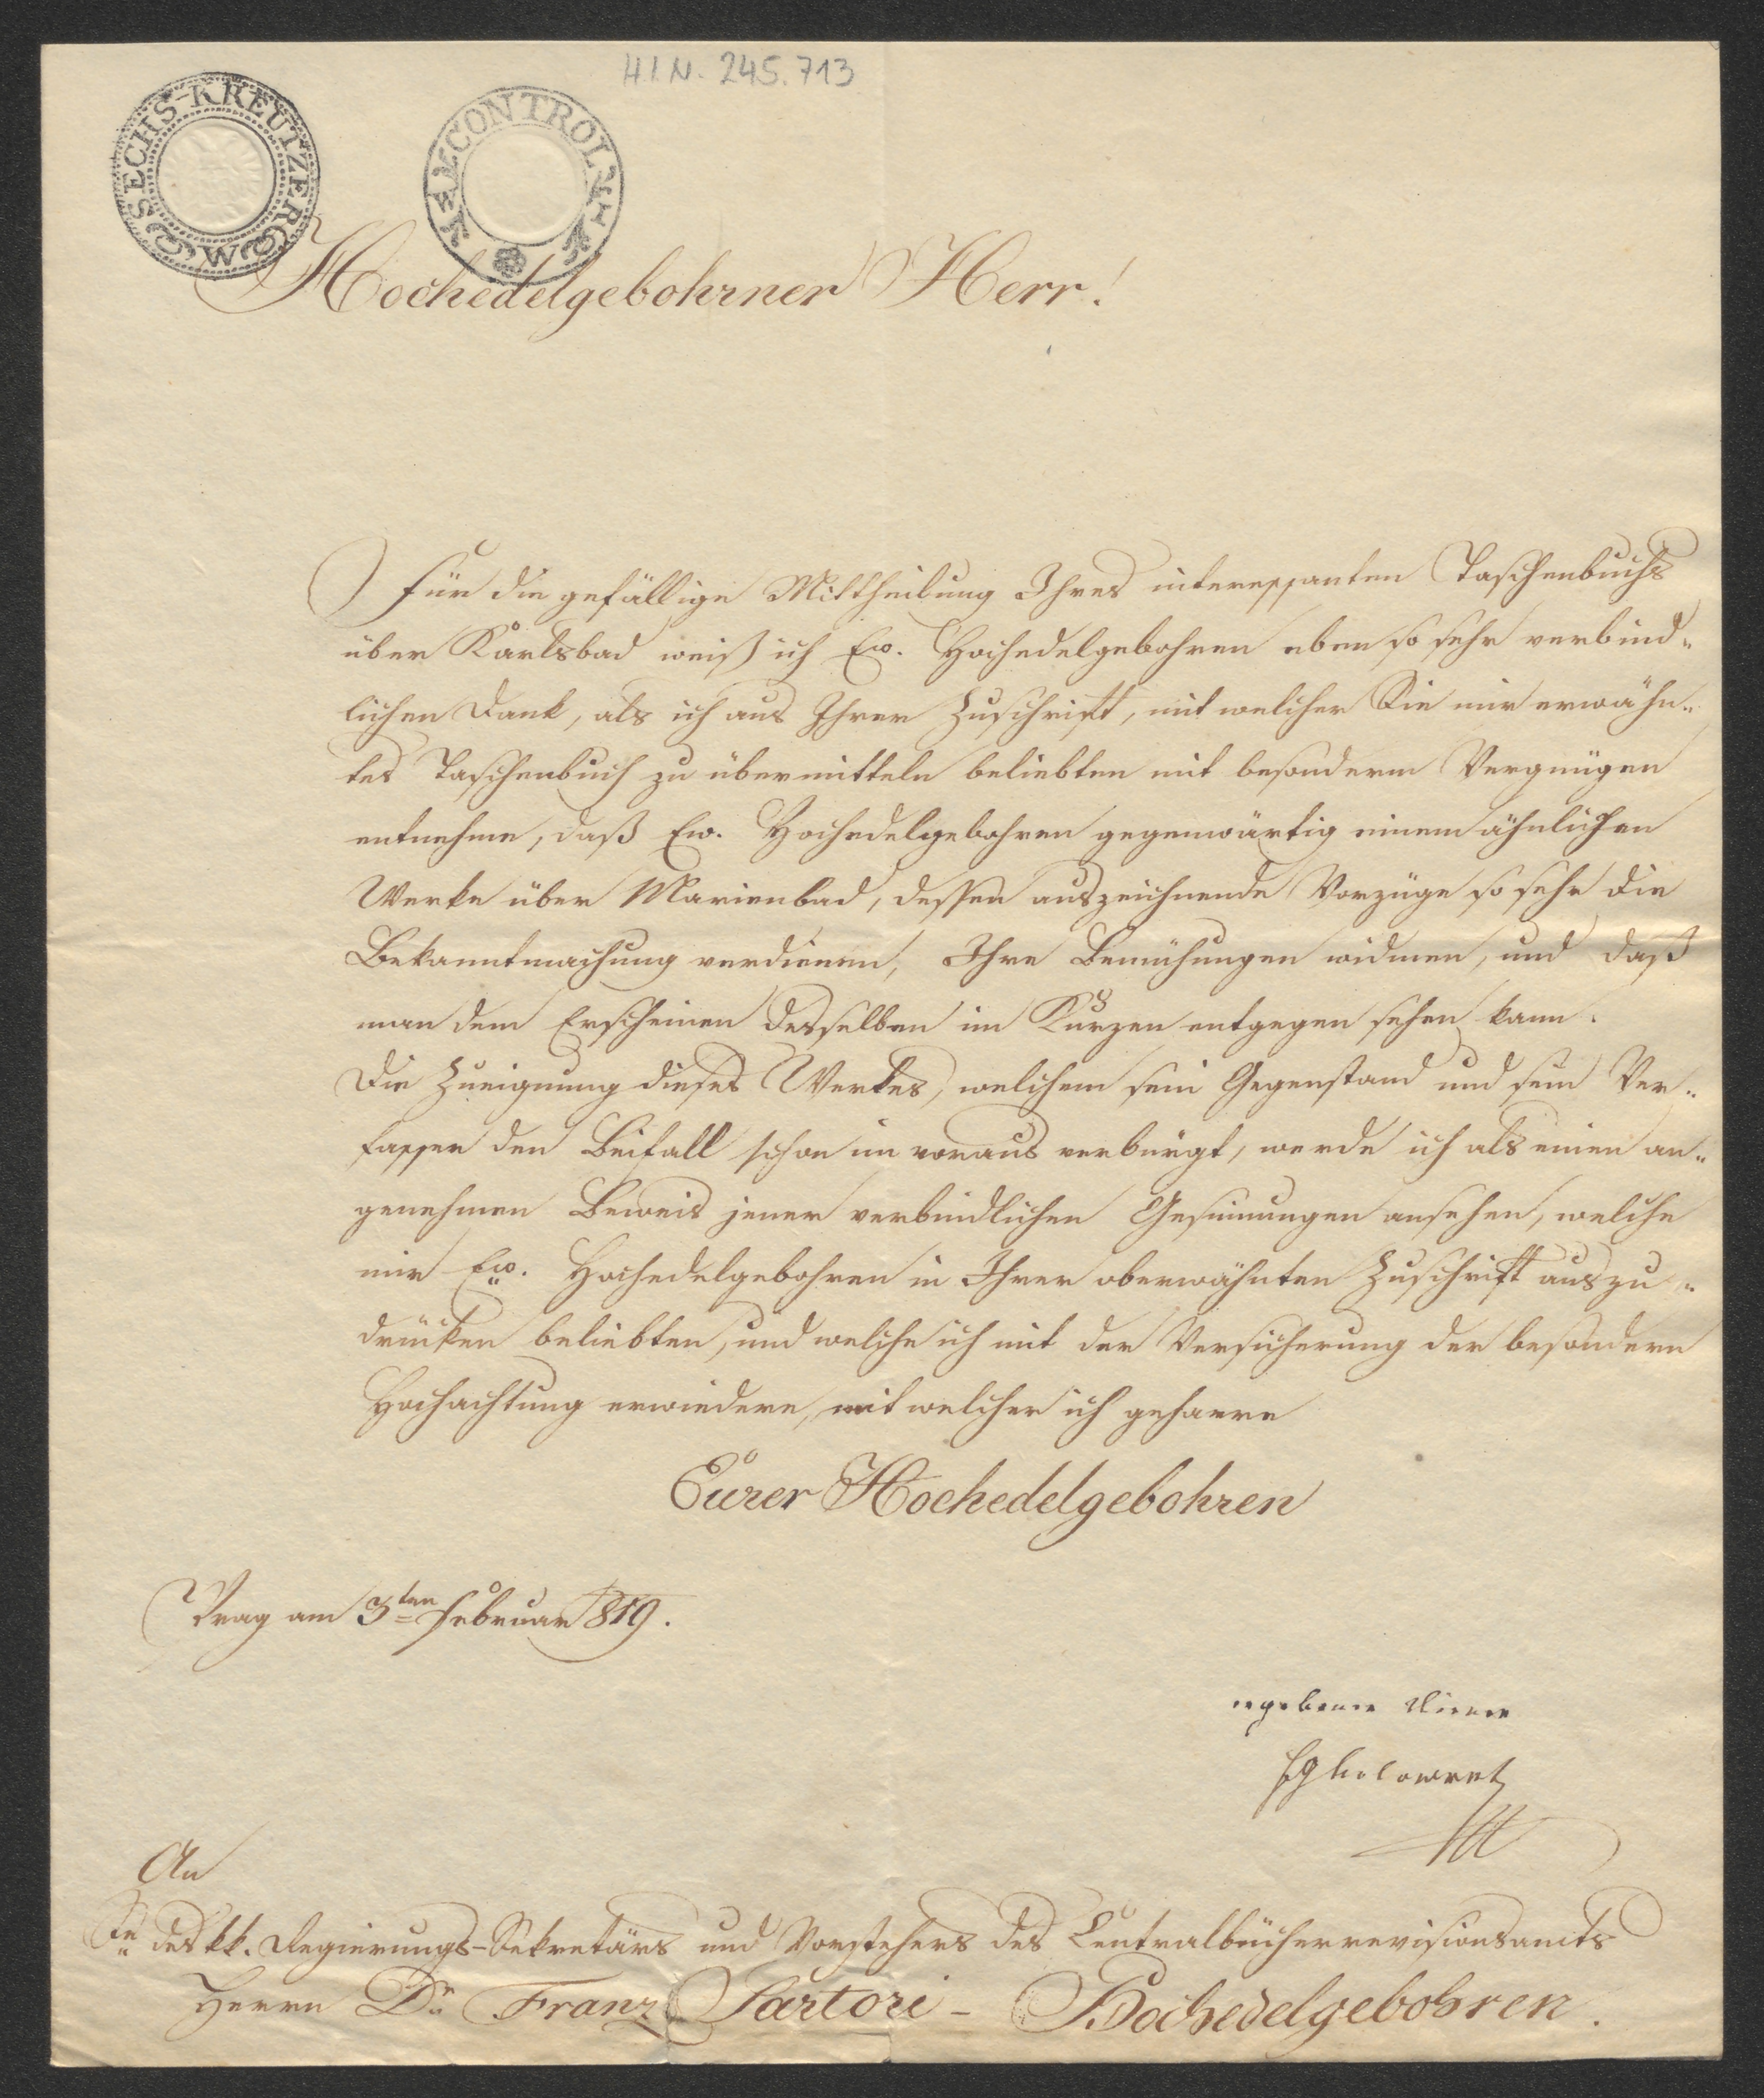 H.I.N. 245.713
SECHS-KREUTZER
W M
CONTROL
Hochedelgebohrner Herr!
Für die gefällige Mittheilung Ihres interessanten Taschenbuchs
über Karlsbad weiß ich Ew. Hochedelgebohren eben so sehr verbind„
lichen Dank, als ich aus Ihrer Zuschrift, mit welcher Sie mir erwähn„
tes Taschenbuch zu übermitteln beliebten mit besonderm Vergnügen
entnehme, daß Ew. Hochedelgebohren gegenwärtig einem ähnlichen
Werke über Marienbad, dessen auszeichnende Vorzüge so sehr die
Bekanntmachung verdienen, Ihre Bemühungen widmen, und daß
man dem Erscheinen desselben im Kurzen entgegen sehen kann.
Die Zueignung dieses Werkes, welchem sein Gegenstand und sein Ver„
fasser den Beifall schon im voraus verbürgt, werde ich als einen an„
genehmen Beweis jener verbindlichen Gesinnungen ansehen, welche
mir Ew. Hochedelgebohren in Ihrer oberwähnten Zuschrift auszu„
drücken beliebten, und welche ich mit der Versicherung der besondern
Hochachtung erwiedere, mit welcher ich geharre
Eurer Hochedelgebohren
Prag am 3ten Februar 1819.
ergebener Diener
FGKolowrat
An
Se des kk. Regierungs-Sekretärs und Vorstehers des Centralbücherrevisionsamts
Herrn Dr. Franz Sartori - Hochedelgebohren.